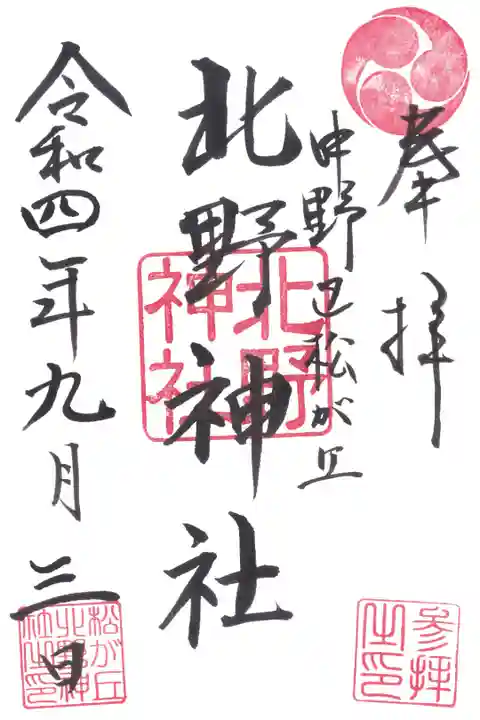 奉拝
中野区松が丘
北野神社
北野
神社
令和四年九月三日
参拝
之印
松が丘
北野神
社之印